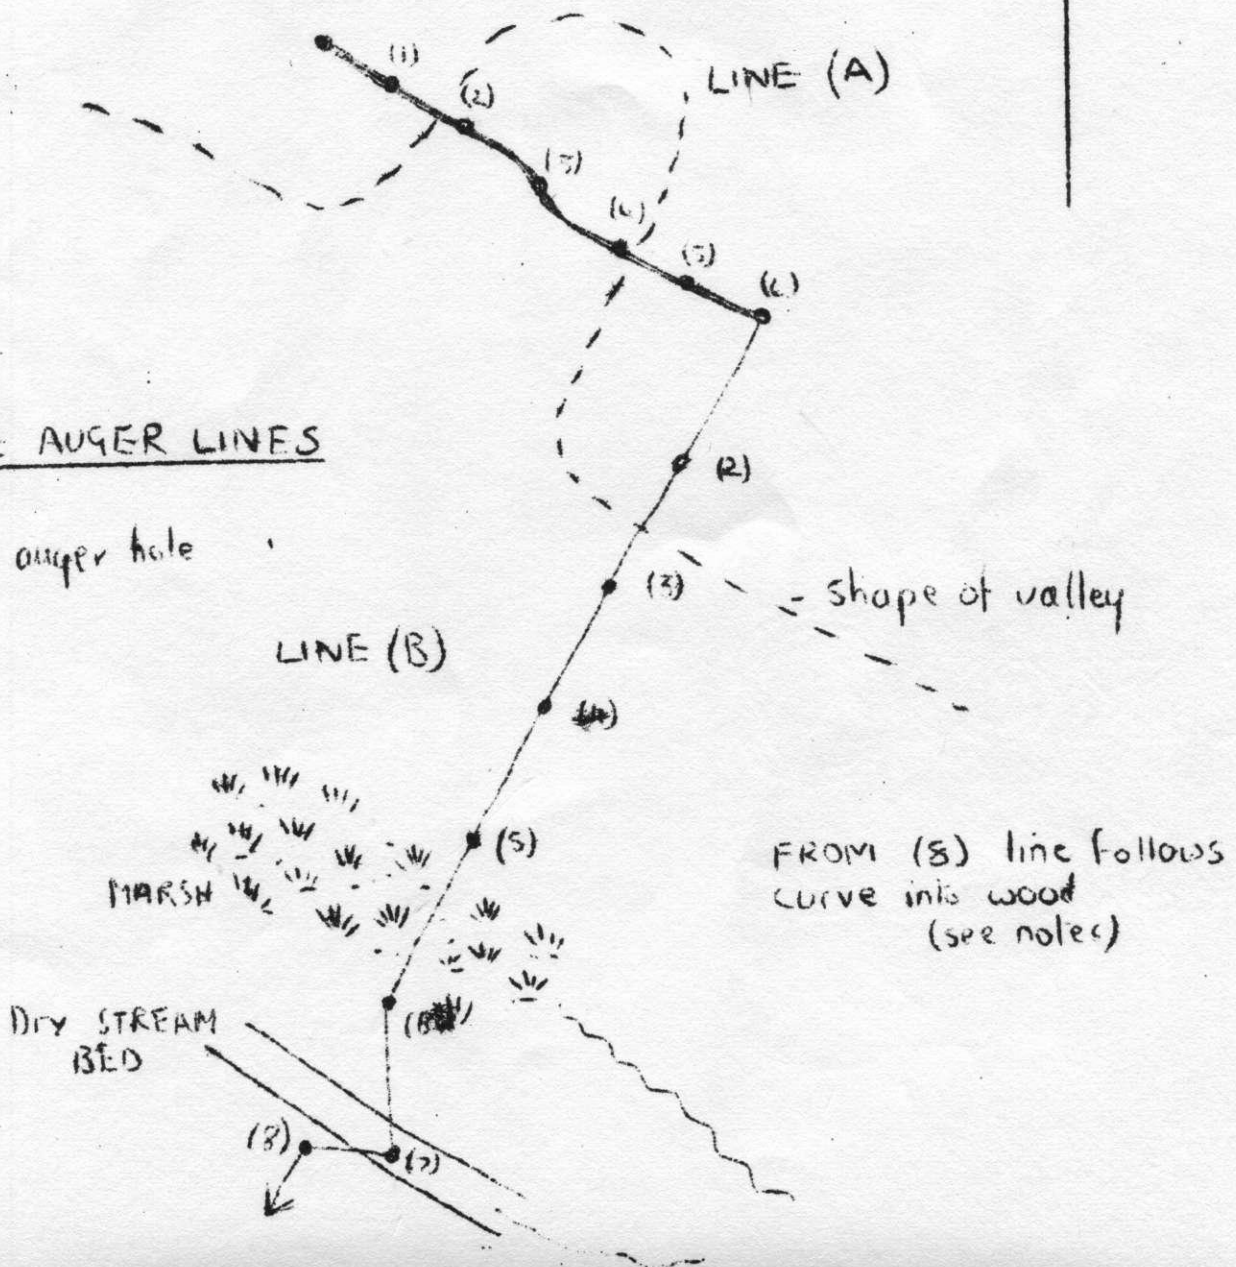 LINE (A)
(1)
(2)
(3)
(5)
AUGER LINES
auger hole
(2)
(3)
shape of valley
LINE (B)
(4)
(5)
MARSH
FROM (8) line follows
curve into wood
(see notes)
Dry STREAM
BED
(8)
(7)